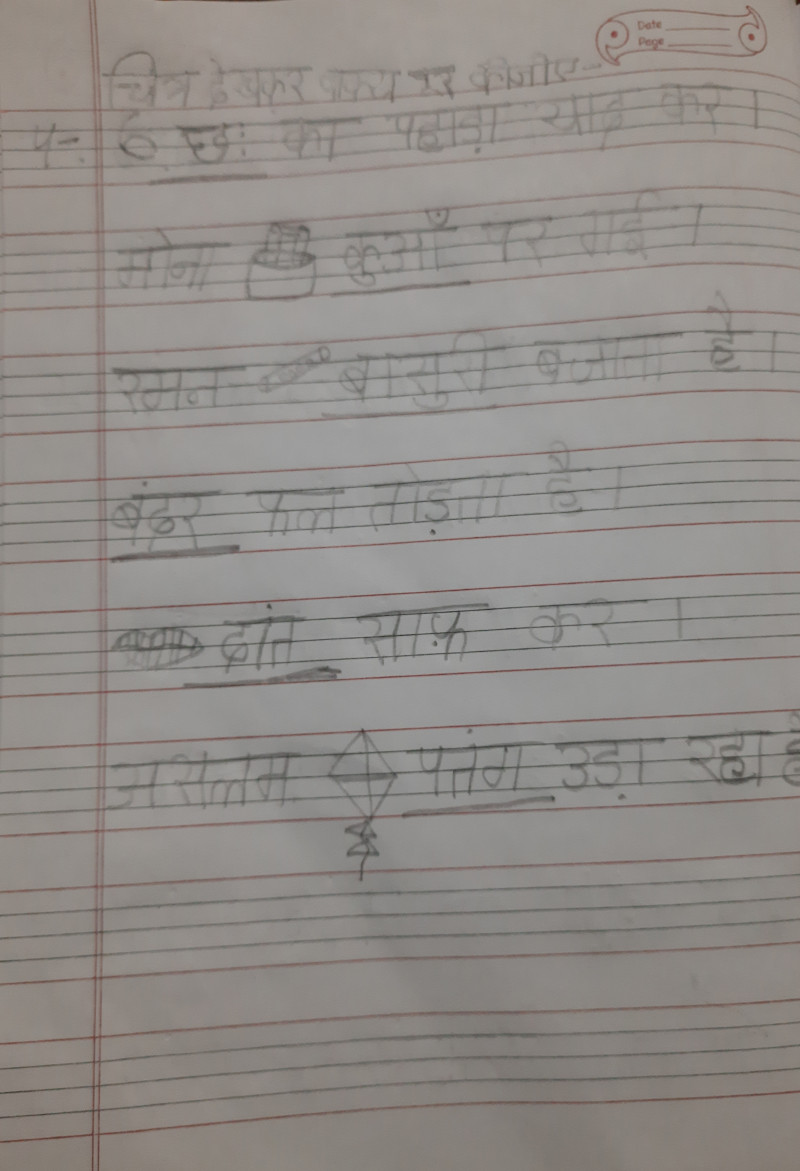 Date
Page
चित्र देखकर वाक्य पूरा कीजीए--
प्र-. ६ छः का पहाड़ा याद कर।
मोना कुआँ पर गई।
रमन बासुरी बजाता है।
बंदर फल तोड़ता है।
दांत साफ़ कर।
असलम पतंग उड़ा रहा है